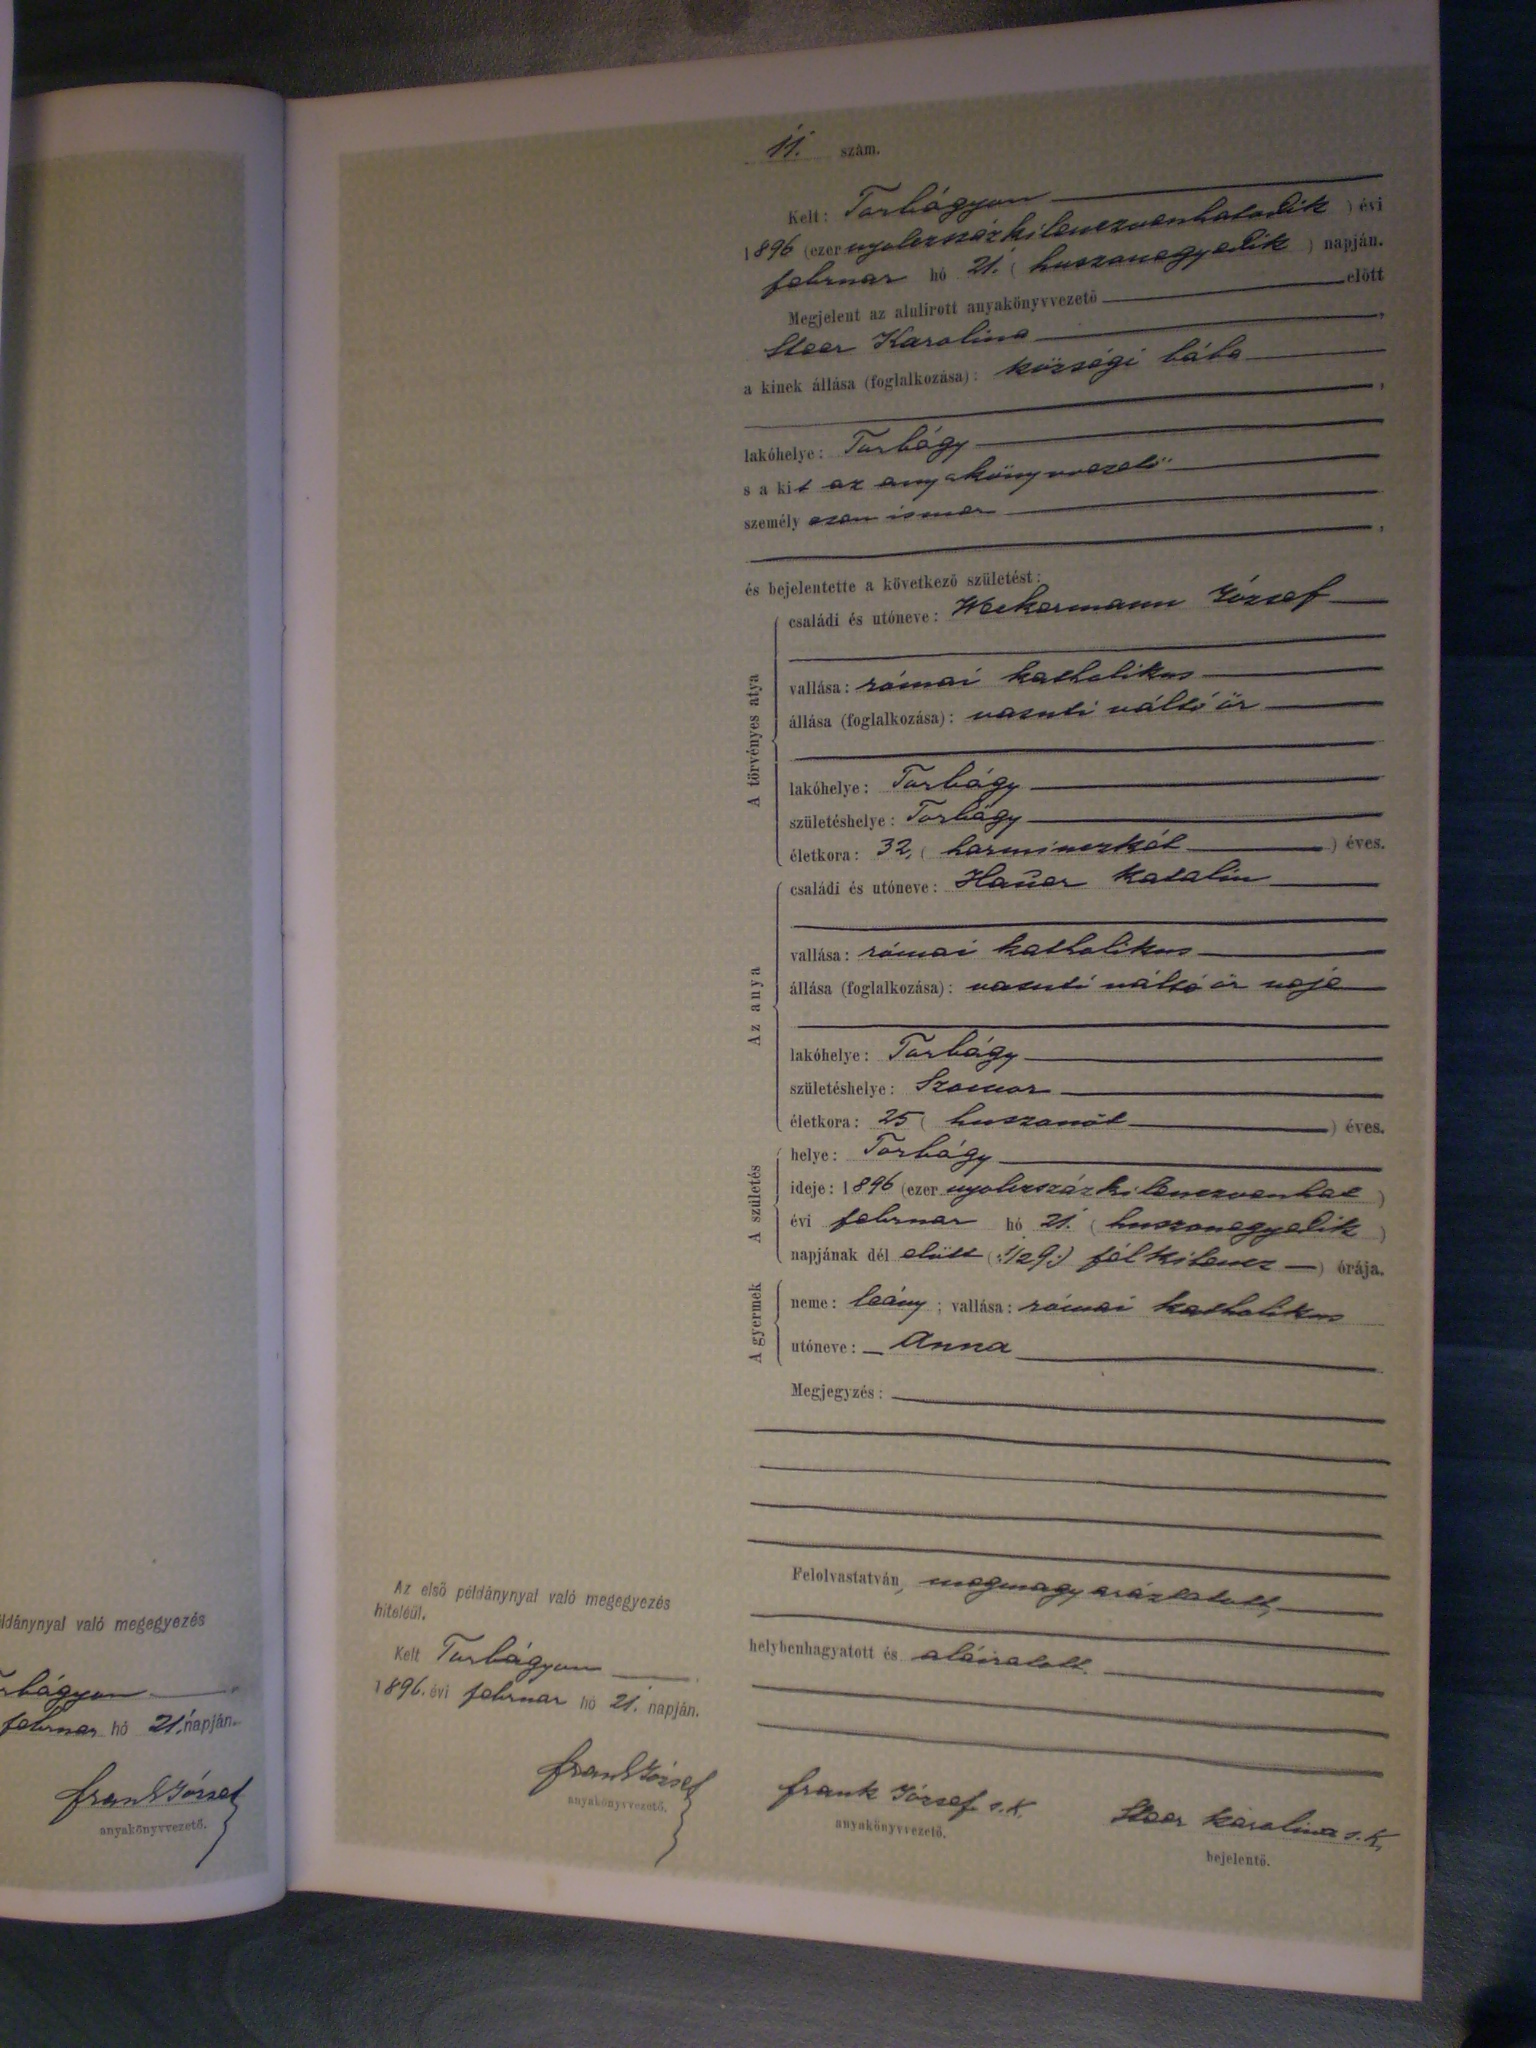 11. szám.
Kelt: Torbágyon
1896 (ezer nyolczszázkilenczvenhatodik) évi
februar hó 21. (huszonegyedik) napján.
Megjelent az alulírott anyakönyvvezető előtt
Steer Karolina,
a kinek állása (foglalkozása): községi bába
,
lakóhelye: Torbágy
s a kit az anyakönyvvezető
személyesen ismer
,
és bejelentette a következő születést:
A törvényes atya
családi és utóneve: Weckermann József
vallása: római katholikus
állása (foglalkozása): vasuti váltó őr
lakóhelye: Torbágy
születéshelye: Torbágy
életkora: 32, (harminczkét) éves.
Az anya
családi és utóneve: Hauer Katalin
vallása: római katholikus
állása (foglalkozása): vasuti váltó őr neje
lakóhelye: Torbágy
születéshelye: Szomor
életkora: 25 (huszonöt) éves.
A születés
helye: Torbágy
ideje: 1896 (ezer nyolczszázkilenczvenhat)
évi februar hó 21. (huszonegyedik)
napjának dél előtt (:1/2 9:) fél kilencz órája.
A gyermek
neme: leány; vallása: római katholikus
utóneve: Anna
Megjegyzés:
Felolvastatván, megmagyaráztatott,
helybenhagyatott és aláiratott.
Frank József s. k.
anyakönyvvezető.
Steer Karolina s. k.
bejelentő.
Az első példánynyal való megegyezés
hiteléül.
Kelt Torbágyon
1896. évi februar hó 21. napján.
Frank József
anyakönyvvezető.
ldánynyal való megegyezés
rbágyon
februar hó 21. napján.
Frank József
anyakönyvvezető.